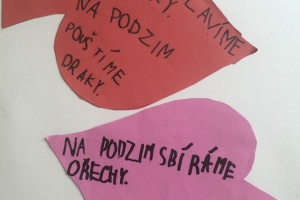 NA PODZIM
POUŠTÍME
DRAKY.
NA PODZIM SBÍRÁME
OŘECHY.